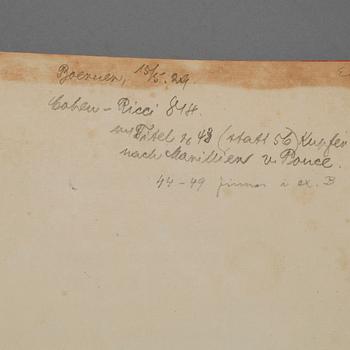 Boerner, 15/5. 29.
Cohen-Ricci 814.
Titel u. 48 (statt 56) Kupfer
nach Marillier v. Ponce.
44-49 finnas i ex. B